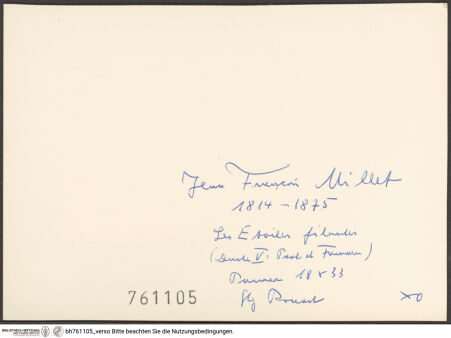 Jean François Millet
1814-1875
Les Etoiles filantes
(Dante V. Paol et Francesca)
18 x 33
761105
XO
BIBLIOTHECA HERTZIANA bh761105_verso Bitte beachten Sie die Nutzungsbedingungen.